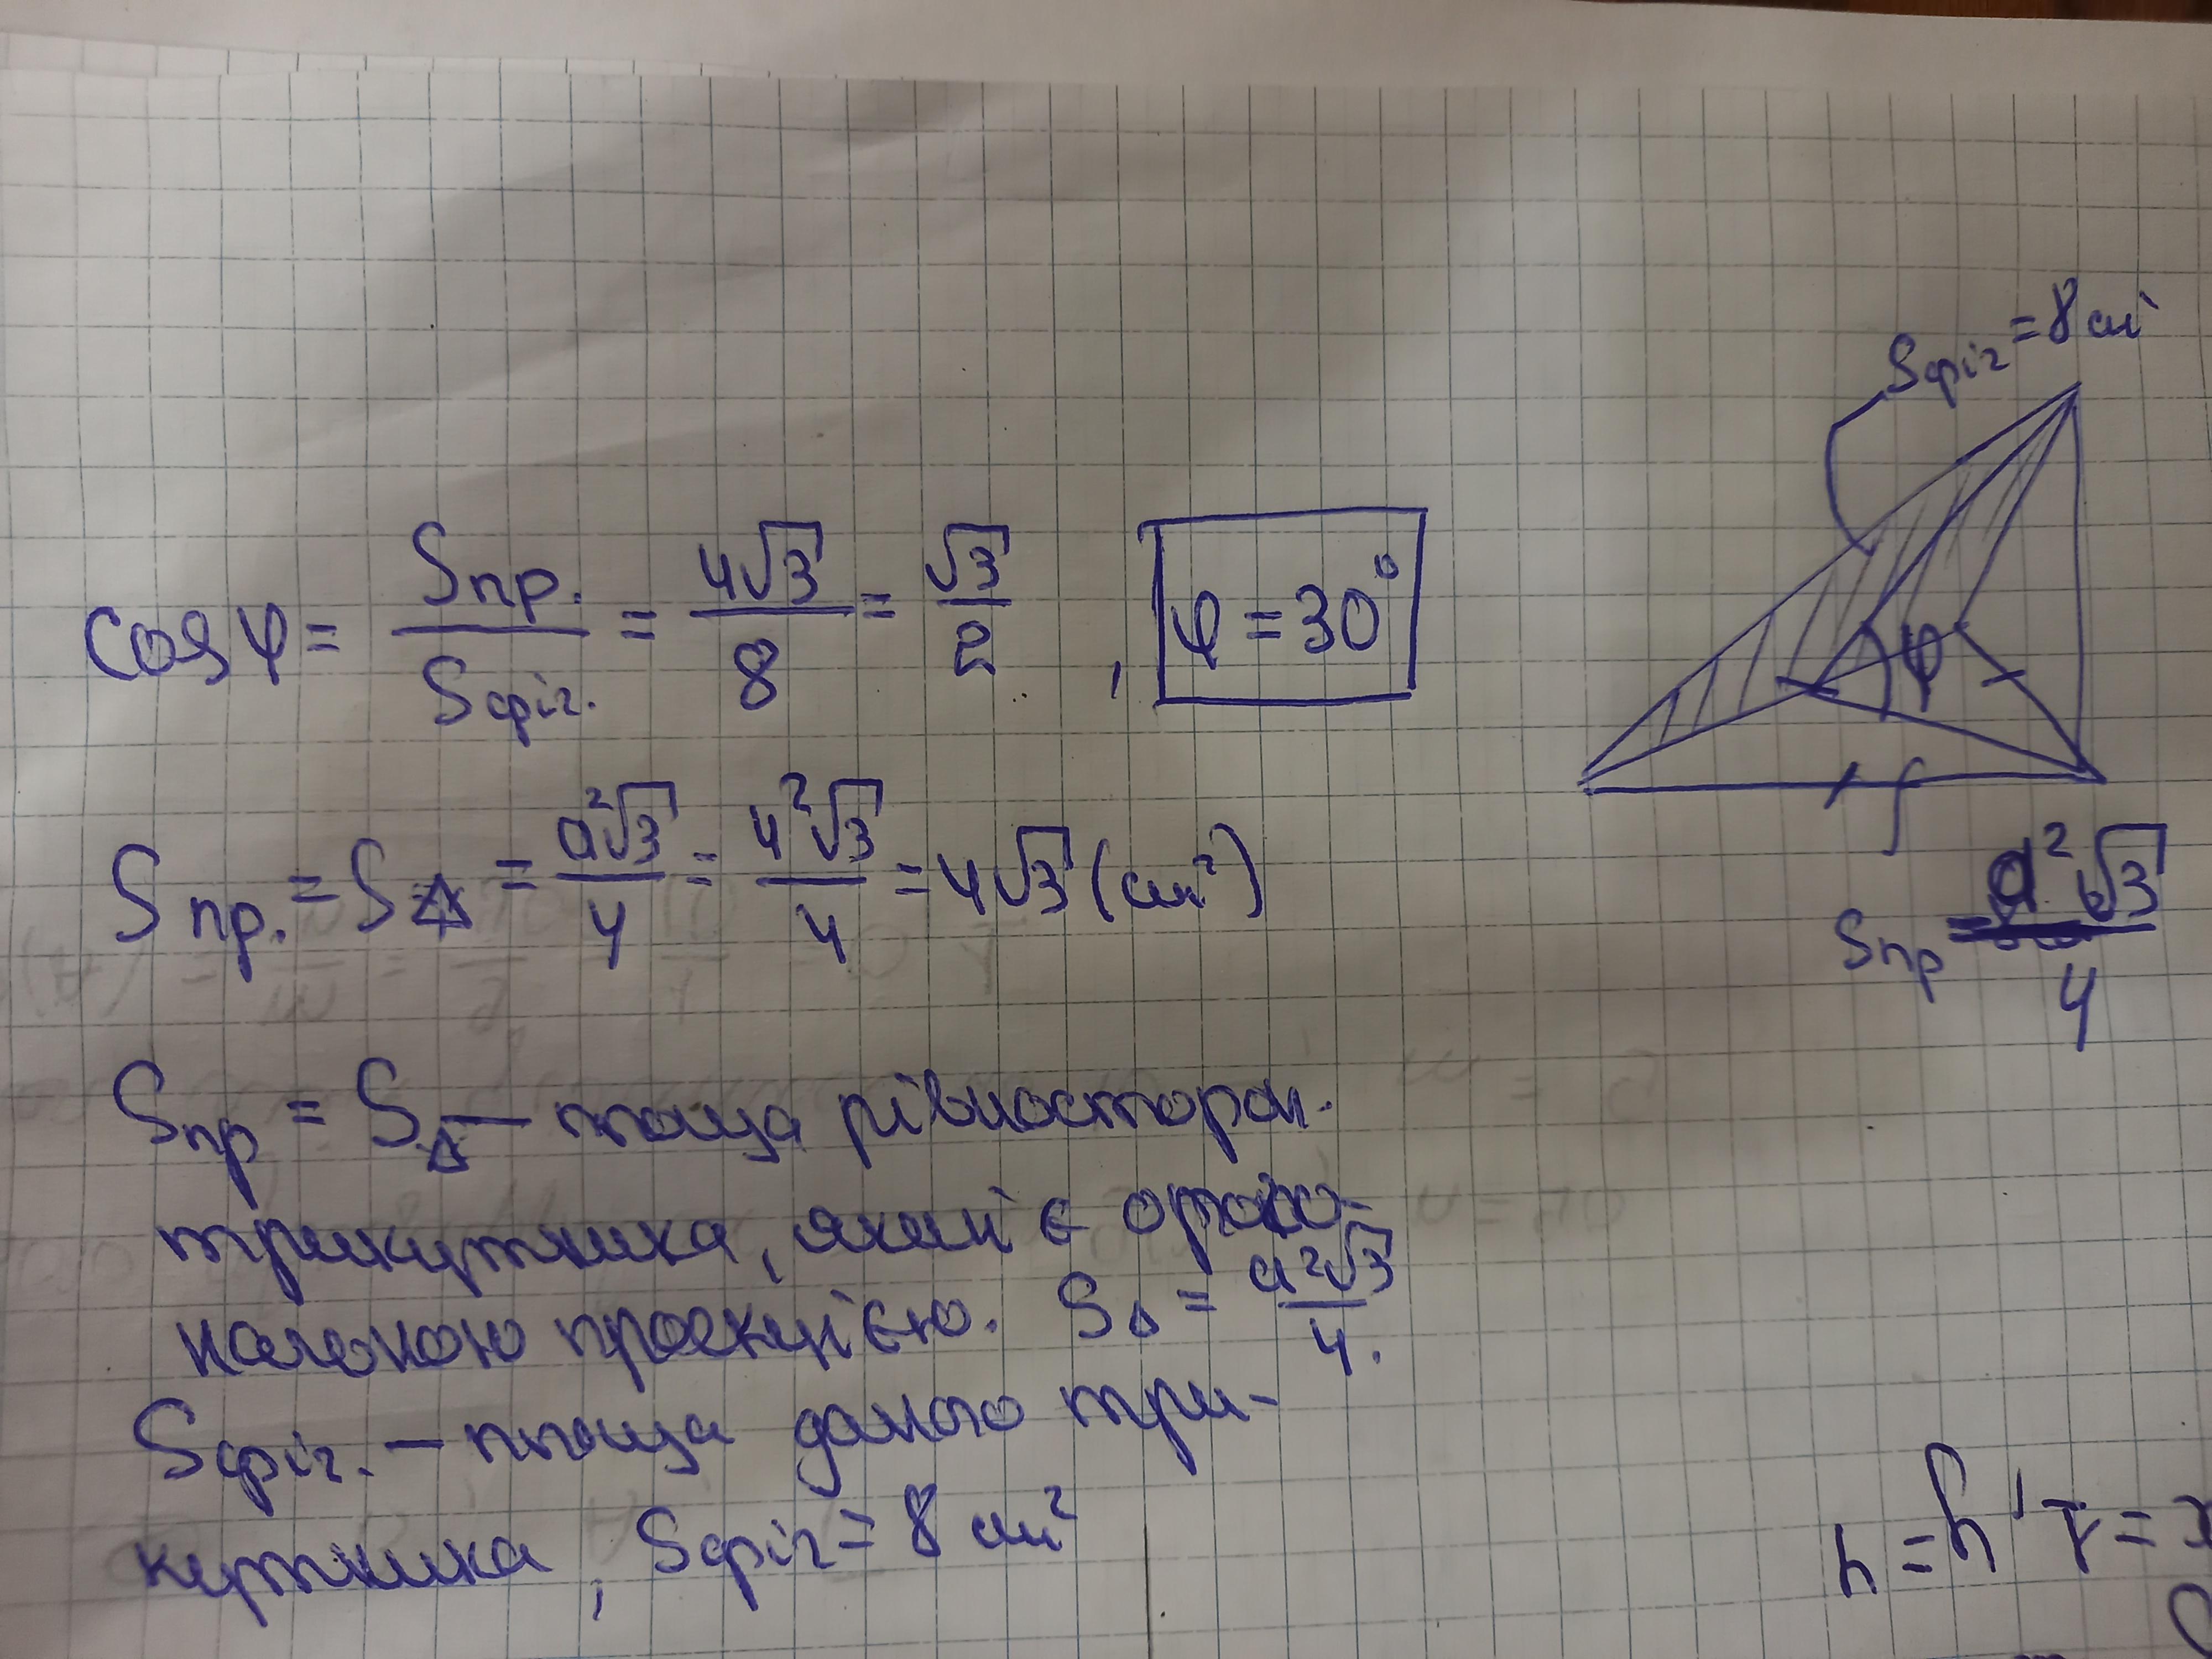 Sфіг = 8 см²
cos φ = Sпр. / Sфіг. = 4√3 / 8 = √3 / 2 , φ = 30°
φ
Sпр. = S△ = a²√3 / 4 = 4²√3 / 4 = 4√3 (см²)
Sпр = a²√3 / 4
Sпр = S△ — площа рівносторон.
трикутника, який є ортого-
нальною проекцією. S△ = a²√3 / 4.
Sфіг. — площа даного три-
кутника, Sфіг = 8 см²